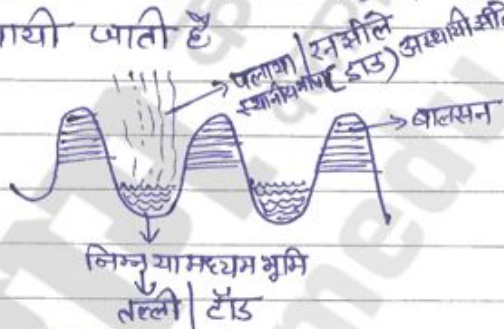 पायी जाती है
प्लाया / रन झीले
स्थानीय भाषा (डाड) अस्थायी झील
बालसन
निम्न या मध्यम भूमि
तल्ली | टॉड